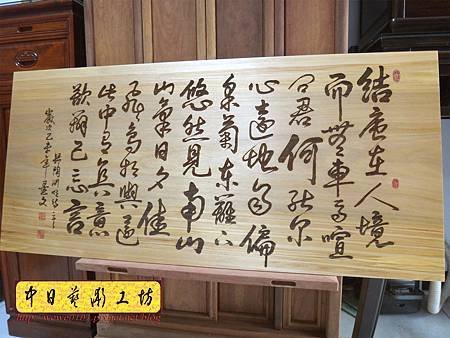 結廬在人境
而無車馬喧
問君何能尔
心遠地自偏
采菊東籬下
悠然見南山
山氣日夕佳
飛鳥相與還
此中有真意
欲辯已忘言
中日藝彫工坊